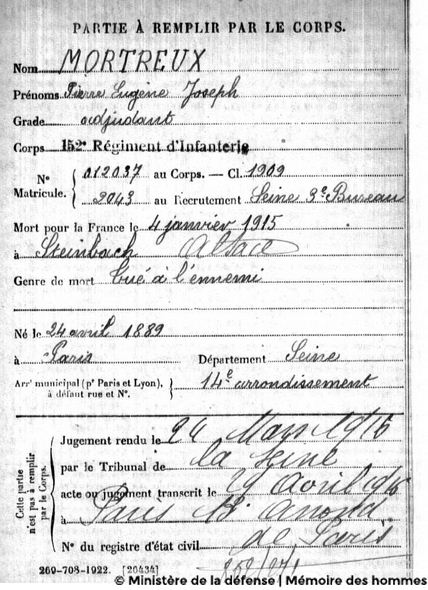 PARTIE À REMPLIR PAR LE CORPS.
Nom MORTREUX
Prénoms Pierre Eugène Joseph
Grade adjudant
Corps 152e Régiment d'Infanterie
N° Matricule. { 012037 au Corps. — Cl. 1909
2043 au Recrutement Seine 3e Bureau
Mort pour la France le 4 janvier 1915
à Steinbach Alsace
Genre de mort tué à l'ennemi
Né le 24 avril 1889
à Paris Département Seine
Arrt municipal (pr Paris et Lyon), à défaut rue et N°. } 14e arrondissement
Cette partie n'est pas à remplir par le Corps.
Jugement rendu le 24 Mars 1916
par le Tribunal de la Seine
acte ou jugement transcrit le avril 1916
à Paris arrond
de Paris
N° du registre d'état civil
269-708-1922. [20434]
© Ministère de la défense | Mémoire des hommes